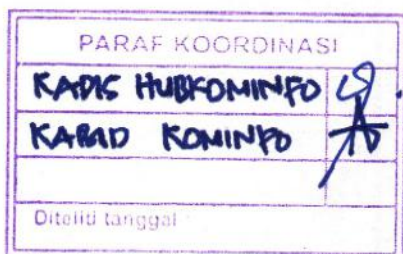 PARAF KOORDINASI
KADIS HUBKOMINFO
KABID KOMINFO
Diteliti tanggal